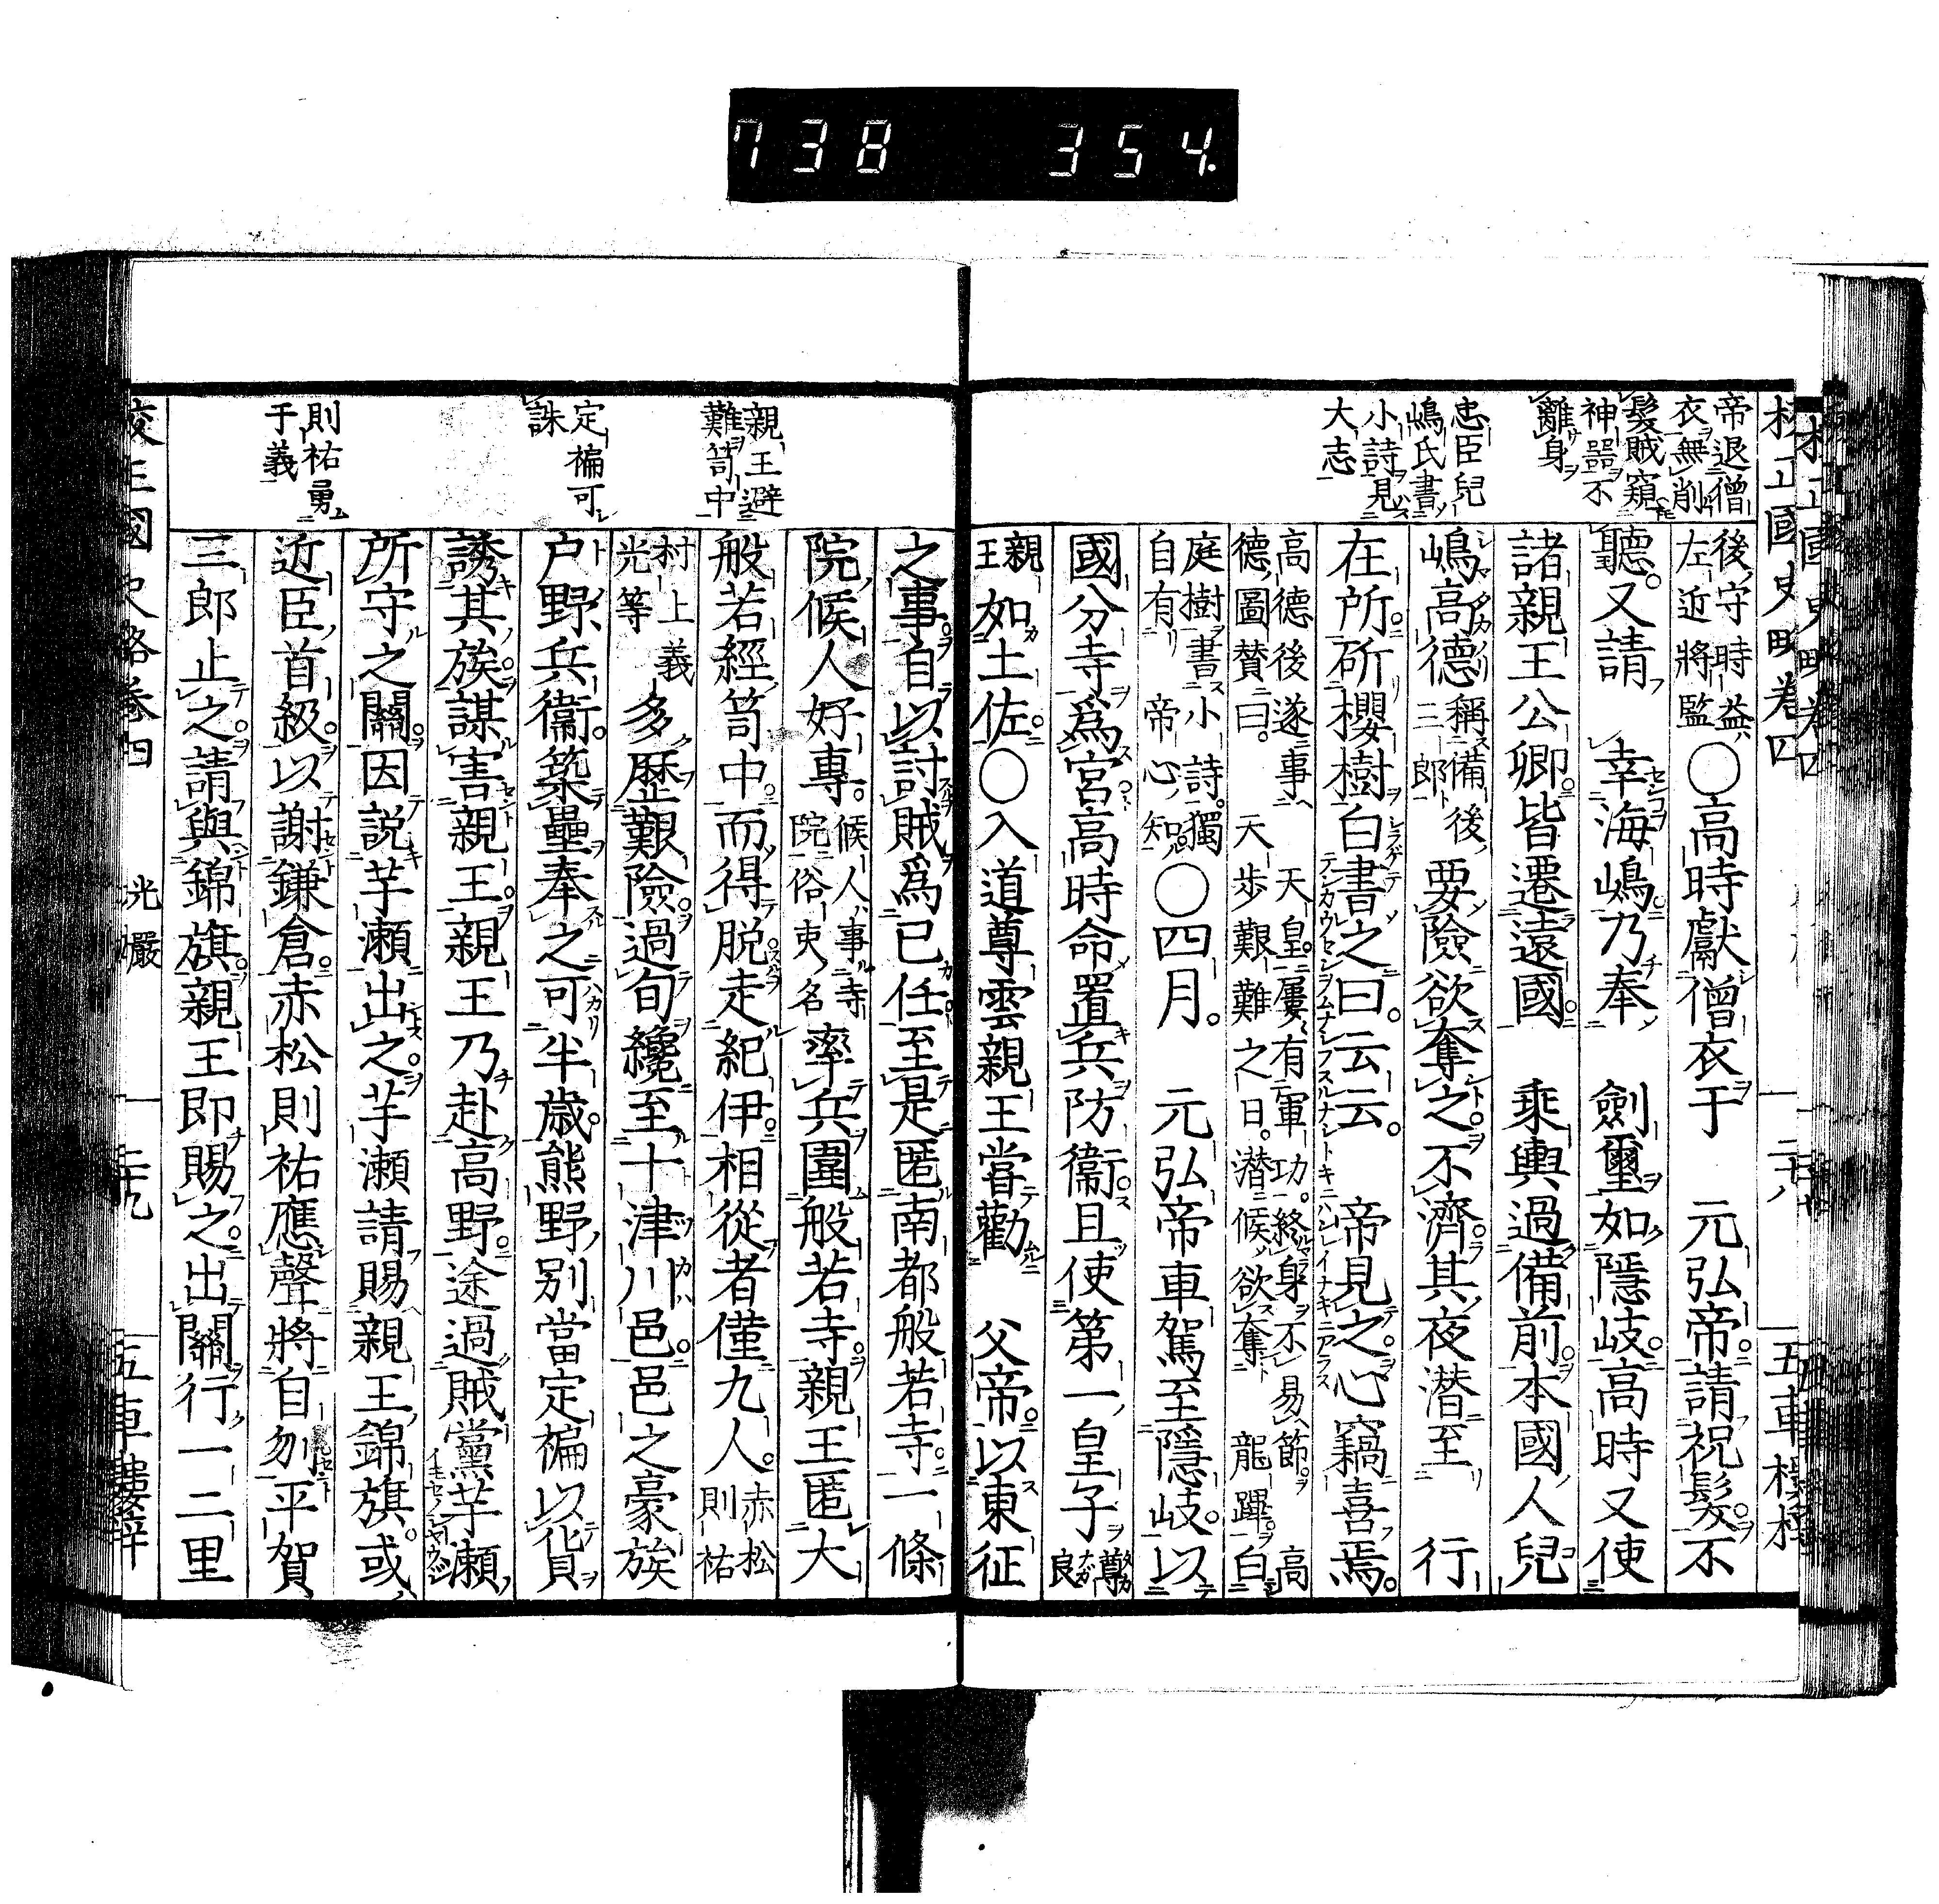 738 354.
帝退僧
衣無削
髮賊窺
神器不
離身
忠臣兒
嶋氏書
小詩見
大志
後守時益
左近將監○高時獻僧衣于 元弘帝請祝髮不
聽又請 幸海嶋乃奉 劍璽如隱岐高時又使
諸親王公卿皆遷遠國 乘輿過備前本國人兒
嶋高德稱備後三郎要險欲奪之不濟其夜潛至 行
在所斫櫻樹白書之曰云云 帝見之心竊喜焉
高德後遂事 天皇屢有軍功終身不易節高
德圖贊曰 天步艱難之日潛候欲奪 龍蹕白
庭樹書小詩獨
自有 帝心知○四月 元弘帝車駕至隱岐以
國分寺爲宮高時命置兵防衞且使第一皇子尊良
親王如土佐○入道尊雲親王嘗勸 父帝以東征
親王避
難笥中
定徧可
誅
則祐勇
于義
之事自以討賊爲己任至是匿南都般若寺一條
院候人好專候人事寺院俗吏名率兵圍般若寺親王匿大
般若經笥中而得脫走紀伊相從者僅九人赤松則祐
村上義光等多歷艱險過旬纔至十津川邑邑之豪族
戸野兵衞築壘奉之可半歳熊野別當定徧以貨
誘其族謀害親王親王乃赴高野途過賊黨芋瀬
所守之關因説芋瀬出之芋瀬請賜親王錦旗或
近臣首級以謝鎌倉赤松則祐應聲將自刎平賀
三郎止之請與錦旗親王即賜之出關行一二里
校正國史略卷四 光嚴 二十九 五車樓梓